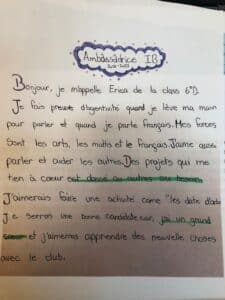 Ambassadrice IB
Bonjour, je m'appelle Erica de la class 6°D.
Je fais preuve d'agentivité quand je lève ma main
pour parler et quand je parle français. Mes forces
sont les arts, les maths et le français. J'aime aussi
parler et aider les autres. Des projets qui me
tien à cœur est donné au autres au besoin.
J'aimerais faire une activité come "les date d'ado"
Je serrais une bonne candidate car, j'ai un grand
cœur et j'aimerais apprendre des nouvelle choses
avec le club.